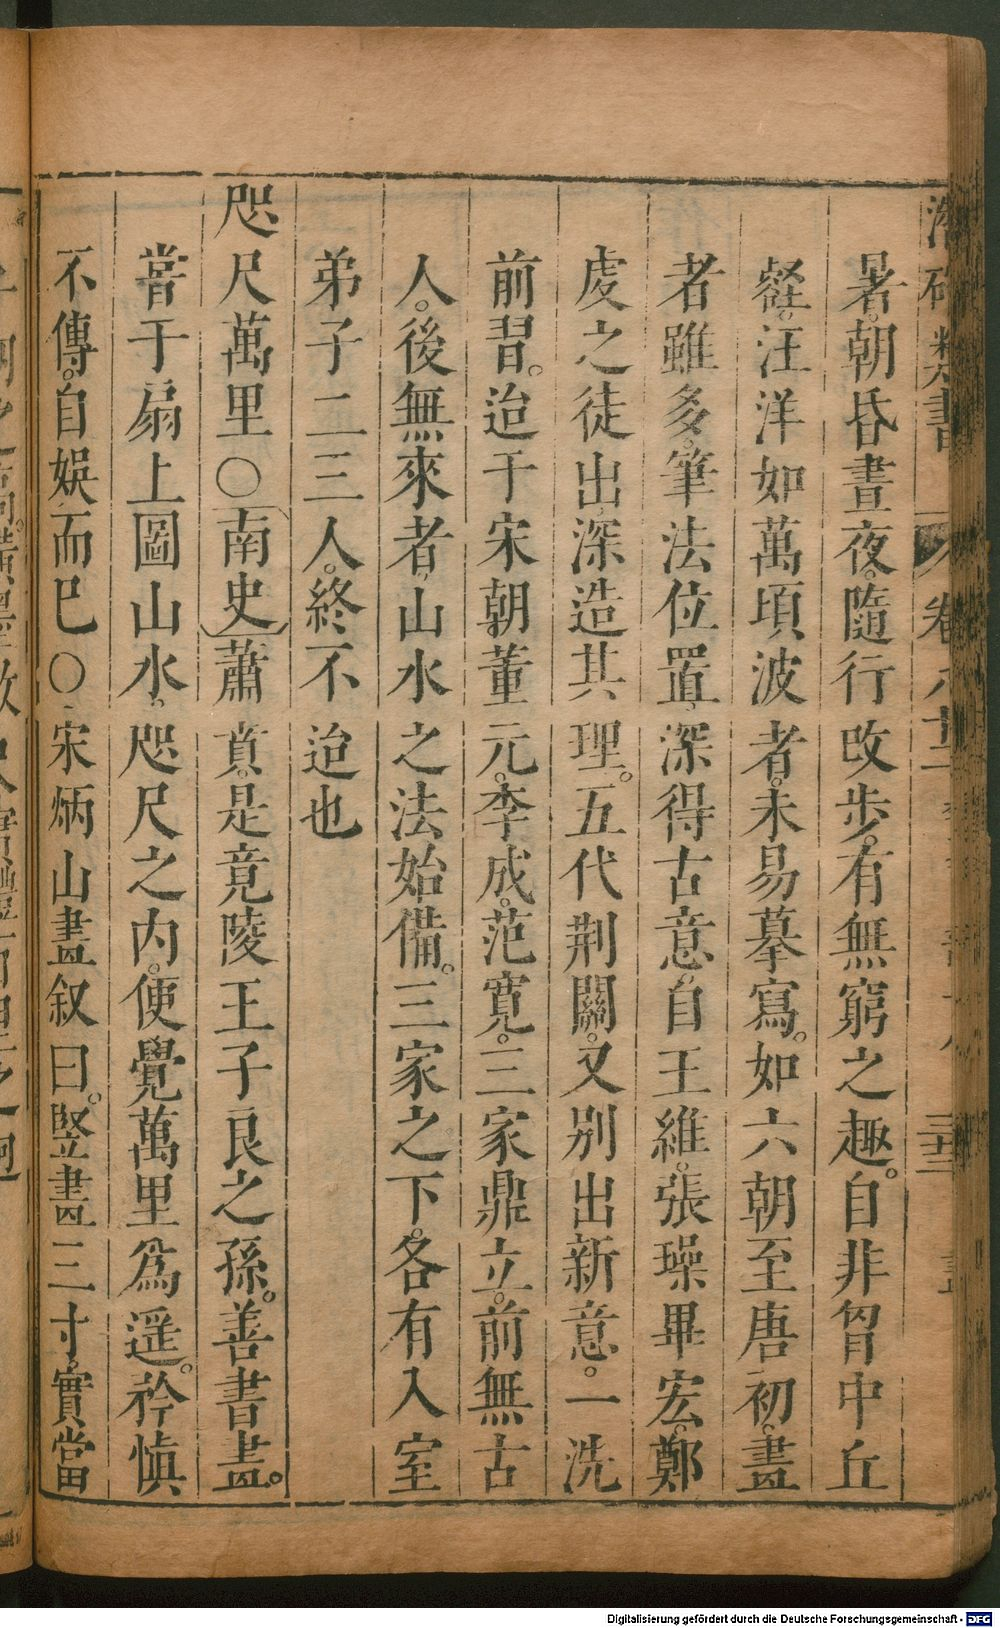 暑。朝昏晝夜。隨行改步。有無窮之趣。自非胷中丘
壑。汪洋如萬頃波者。未易摹寫。如六朝至唐初。畫
者雖多。筆法位置。深得古意。自王維。張璪。畢宏。鄭
虔之徒出。深造其理。五代荆關。又別出新意。一洗
前習。迨于宋朝。董元。李成。范寛。三家鼎立。前無古
人。後無來者。山水之法始備。三家之下。各有入室
弟子二三人。終不迨也
咫尺萬里○南史蕭賁。是竟陵王子良之孫。善書畫。
嘗于扇上圖山水。咫尺之内。便覺萬里爲遥。矜愼
不傳。自娯而巳○宋炳山畫叙曰。竪畫三寸。實當
Digitalisierung gefördert durch die Deutsche Forschungsgemeinschaft - DFG